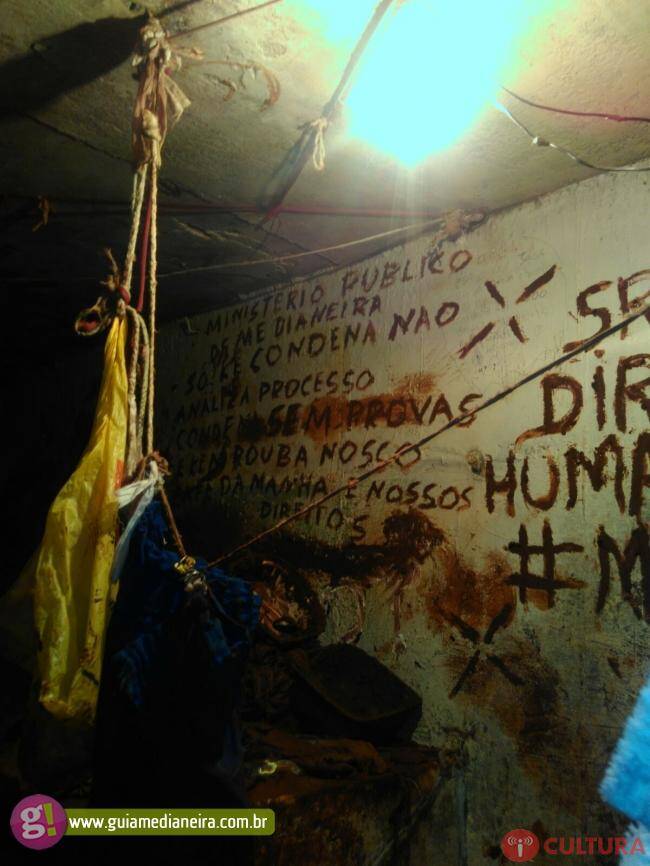 - MINISTERIO PUBLICO
DE MEDIANEIRA
- SÓ SE CONDENA NAO
ANALIZA PROCESSO
CONDENA SEM PROVAS
ROUBA NOSCO
DA MANHA E NOSSOS
DIREITOS
DIR
HUMA
#M
www.guiamedianeira.com.br
g!
CULTURA